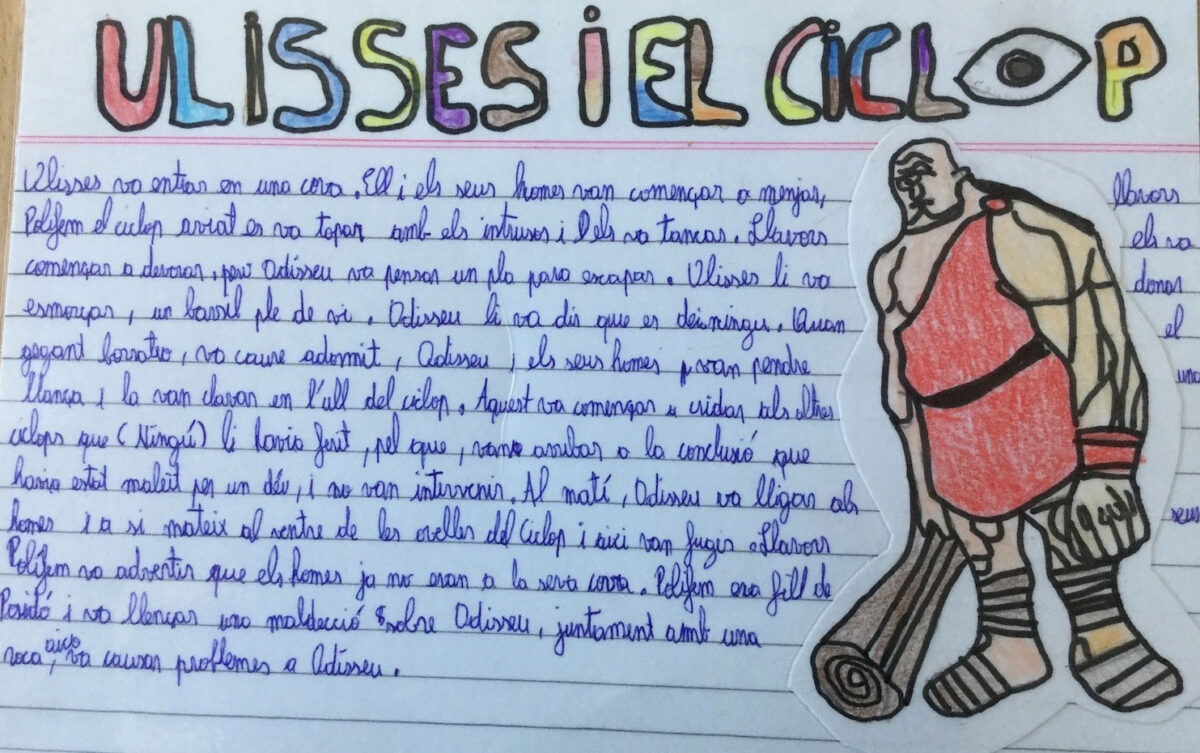 ULISSES i EL CiCLOP
Ulisses va entrar en una cova. Ell i els seus homes van començar a menjar, llavors
Polifem el ciclop aviat es va topar amb els intrusos i els va tancar. Llavors els va
començar a devorar, però Odisseu va pensar un pla para escapar. Ulisses li va donar
esmorçar, un barril ple de vi. Odisseu li va dir que es deiningu. Quan el
gegant borratxo, va caure adormit, Odisseu i els seus homes van pendre una
llança i la van clavar en l'ull del ciclop. Aquest va començar a cridar als altres
ciclops que (Ningú) li havia ferit, pel que, van arribar a la conclusió que
havia estat maleït per un déu, i no van intervenir. Al matí, Odisseu va lligar als seus
homes i a si mateix al ventre de les ovelles del Ciclop i aixi van fugir. Llavors
Polifem va advertir que els homes ja no eran a la seva cova. Polifem era fill de
Posidó i va llençar una maldecció sobre Odisseu, juntament amb una
roca, aixo va causar problemes a Odisseu.